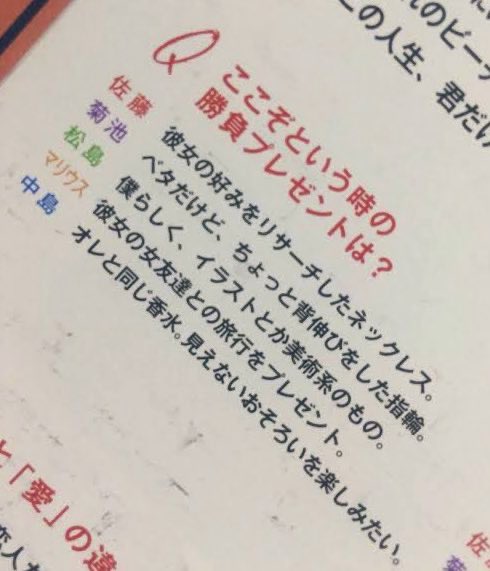 れのビー
この人生、君だけ
Q ここぞという時の
勝負プレゼントは?
佐藤 彼女の好みをリサーチしたネックレス。
菊池 ベタだけど、ちょっと背伸びをした指輪。
松島 僕らしく、イラストとか美術系のもの。
マリウス 彼女の女友達との旅行をプレゼント。
中島 オレと同じ香水。見えないおそろいを楽しみたい。
と「愛」の違
恋人
佐
菊